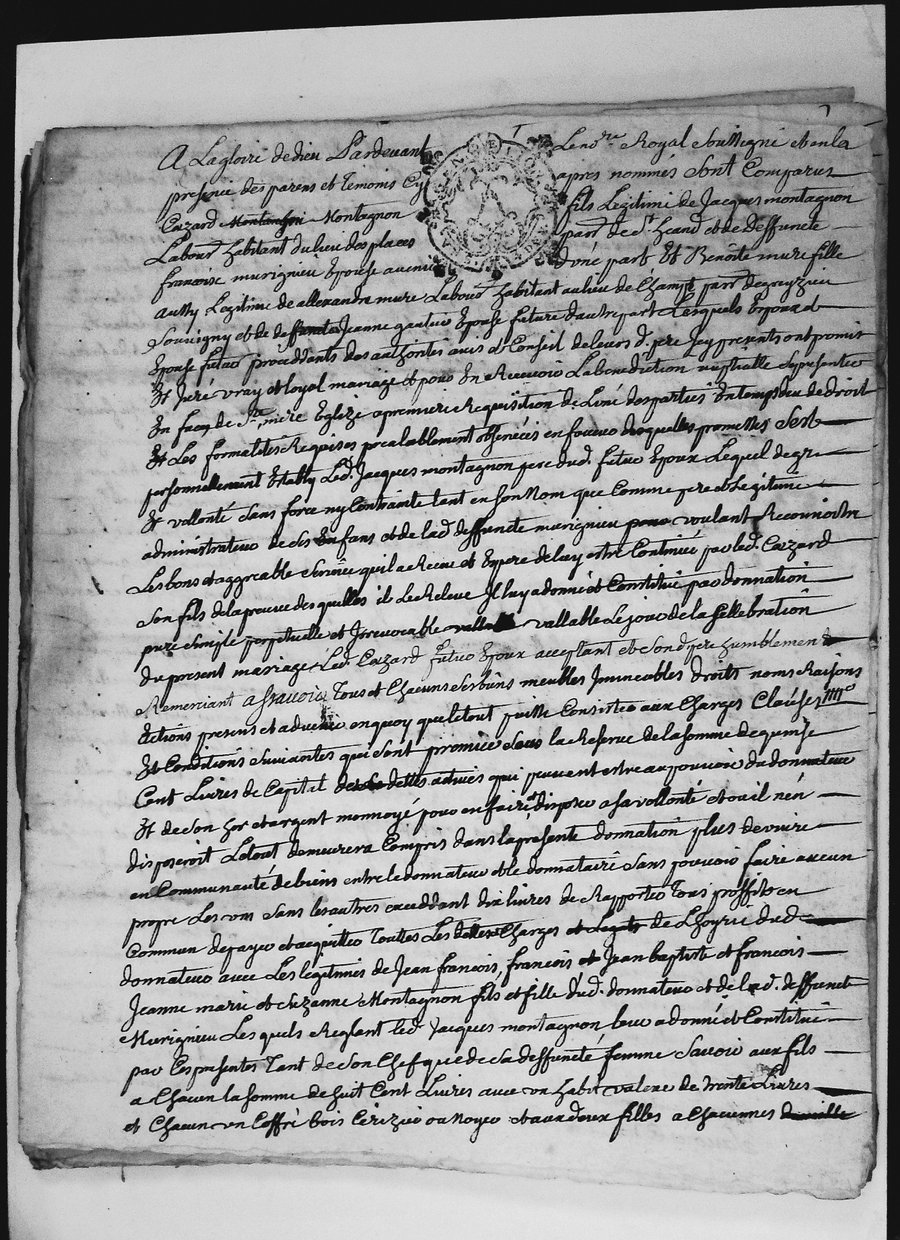 A La gloire de dieu Pardevant Le nore Royal Soussigné et en la
presence des parens et temoins Cy apres nommés Sont Comparus
Cezard Montagnon fils Legitime de Jacques montagnon
Labour habitant du lieu des places parr de st et de deffuncte
francoise murignieu Epouse avenir d'une part Et Benoite mure fille
aussy Legitime de allexandre mure Labour habitant au lieu de Champt parr de grezieu
Souvigny et de deffuncte Jeanne Epouse future dautre part Lesquels Epoux et
Epouse futur proceddants des authorités avis et Conseil de leurs d. pere Icy presents ont promis
Et Juré vray et loyal mariage et pour En Recevoir La benediction nuptialle Se presenter
En face de Ste mere Eglize a premiere Requisition de L'une des parties En temps deu de droit
Et Les formalités Requises prealablement observées en faveur desquelles promesses Sest
personnellement Estably Led. Jacques montagnon pere dud. futur Epoux Lequel de gre
Et vollonté Sans force ny Contrainte tant en Son Nom que Comme pere et Legitime
administrateur de Ses Enfans et de lad. deffuncte murignieu voulant Reconnoitre
Les bons et aggreable Service quil a Receu et Espere de luy estre Continué par led. Cezard
Son fils de la preuve des quelles il Le Releve Il luy a donné et Constitué par donnation
pure Simple perpetuelle et Irrevocable vallable Le jour de la Cellebration
du present mariage Led. Cezard futur Epoux acceptant et Sond. pere humblement
Remerciant a Scavoir Tous et Chacuns Ses biens meubles Immeubles droits noms Raisons
Actions presens et advenir en quoy que le tout puisse Consister aux Charges Clauses
Et Conditions Suivantes qui Sont premier Sous la Reserve de la Somme de quinze
Cent Livres de Capital de dettes actives qui peuvent estre au pouvoir du donnateur
Et de Son hor et argent monnoyé pour en faire et disposer a Sa vollonté et ou il n'en
disposeroit Le tout demeurera Compris dans la presente donnation plus de vivre
en Communauté de biens entre le donnateur et le donnataire Sans pouvoir faire aucun
propre Les uns Sans les autres exceddant dix livres de Rapporter Tous proffits en
Commun de payer et acquitter Touttes Les Charges de Lhoyrie dud.
donnateur avec Les legitimes de Jean francois, francois et Jean baptiste et francois
Jeanne marie et Suzanne Montagnon fils et fille dud. donnateur et de lad. deffuncte
Murignieu Les quels Reglant led. Jacques montagnon leur a donné et Constitué
par Ces presentes Tant de Son Chef que de Sa deffuncte femme Savoir aux fils
a Chacun la Somme de huit Cent Livres avec un habit valeur de trente Livres
et Chacun un Coffre bois Cerizier ou Noyer et aux deux filles a Chacunnes